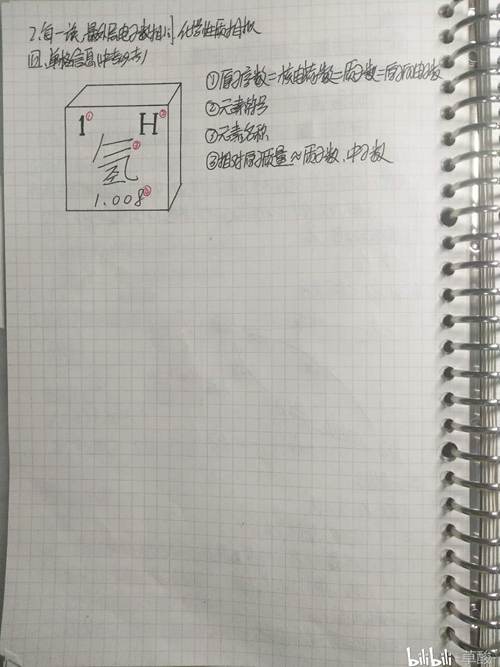 2.每一族,最外层电子数相同,化学性质相似
四.单格信息(中考必考)
1① H②
氢③
1.008④
①原子序数=核电荷数=质子数=原子核外电子数
②元素符号
③元素名称
④相对原子质量≈质子数+中子数
bilibili 草酸